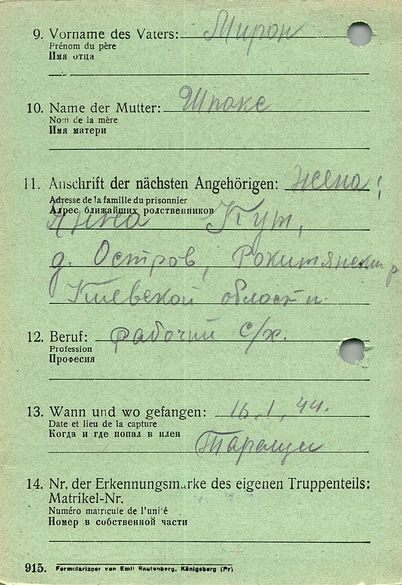 9. Vorname des Vaters: Мирон
Prénom du père
Имя отца
10. Name der Mutter: Шпакс
Nom de la mère
Имя матери
11. Anschrift der nächsten Angehörigen: жена:
Adresse de la famille du prisonnier
Адрес ближайших родственников
Анна Кут,
д. Остров, Рокитянский р
Киевской области
12. Beruf: рабочий с/х.
Profession
Професия
13. Wann und wo gefangen: 16.1.44.
Date et lieu de la capture
Когда и где попал в плен
Таращи
14. Nr. der Erkennungsmarke des eigenen Truppenteils:
Matrikel-Nr.
Numéro matricule de l'unité
Номер в собственной части
915. Formularlager von Emil Rautenberg, Königsberg (Pr)